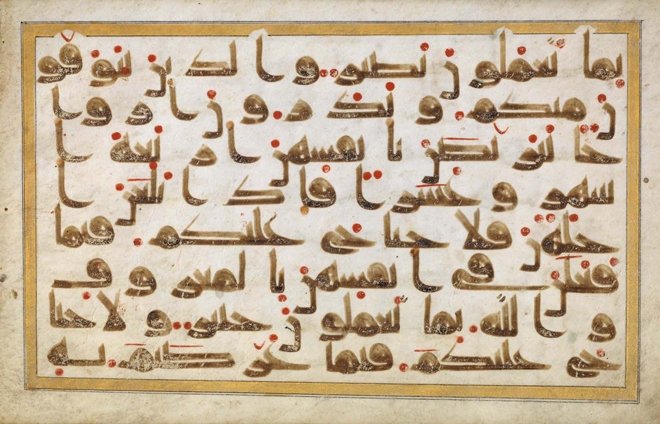 بما تعملون بصير والذين يتوفو
ن منكم ويذرون ازوا
جا يتربصن بانفسهن اربعة ا
شهر وعشرا فاذا بلغن ا
جلهن فلا جناح عليكم فيما
فعلن في انفسهن بالمعروف
والله بما تعملون خبير ولا جنا
ح عليكم فيما عرضتم به